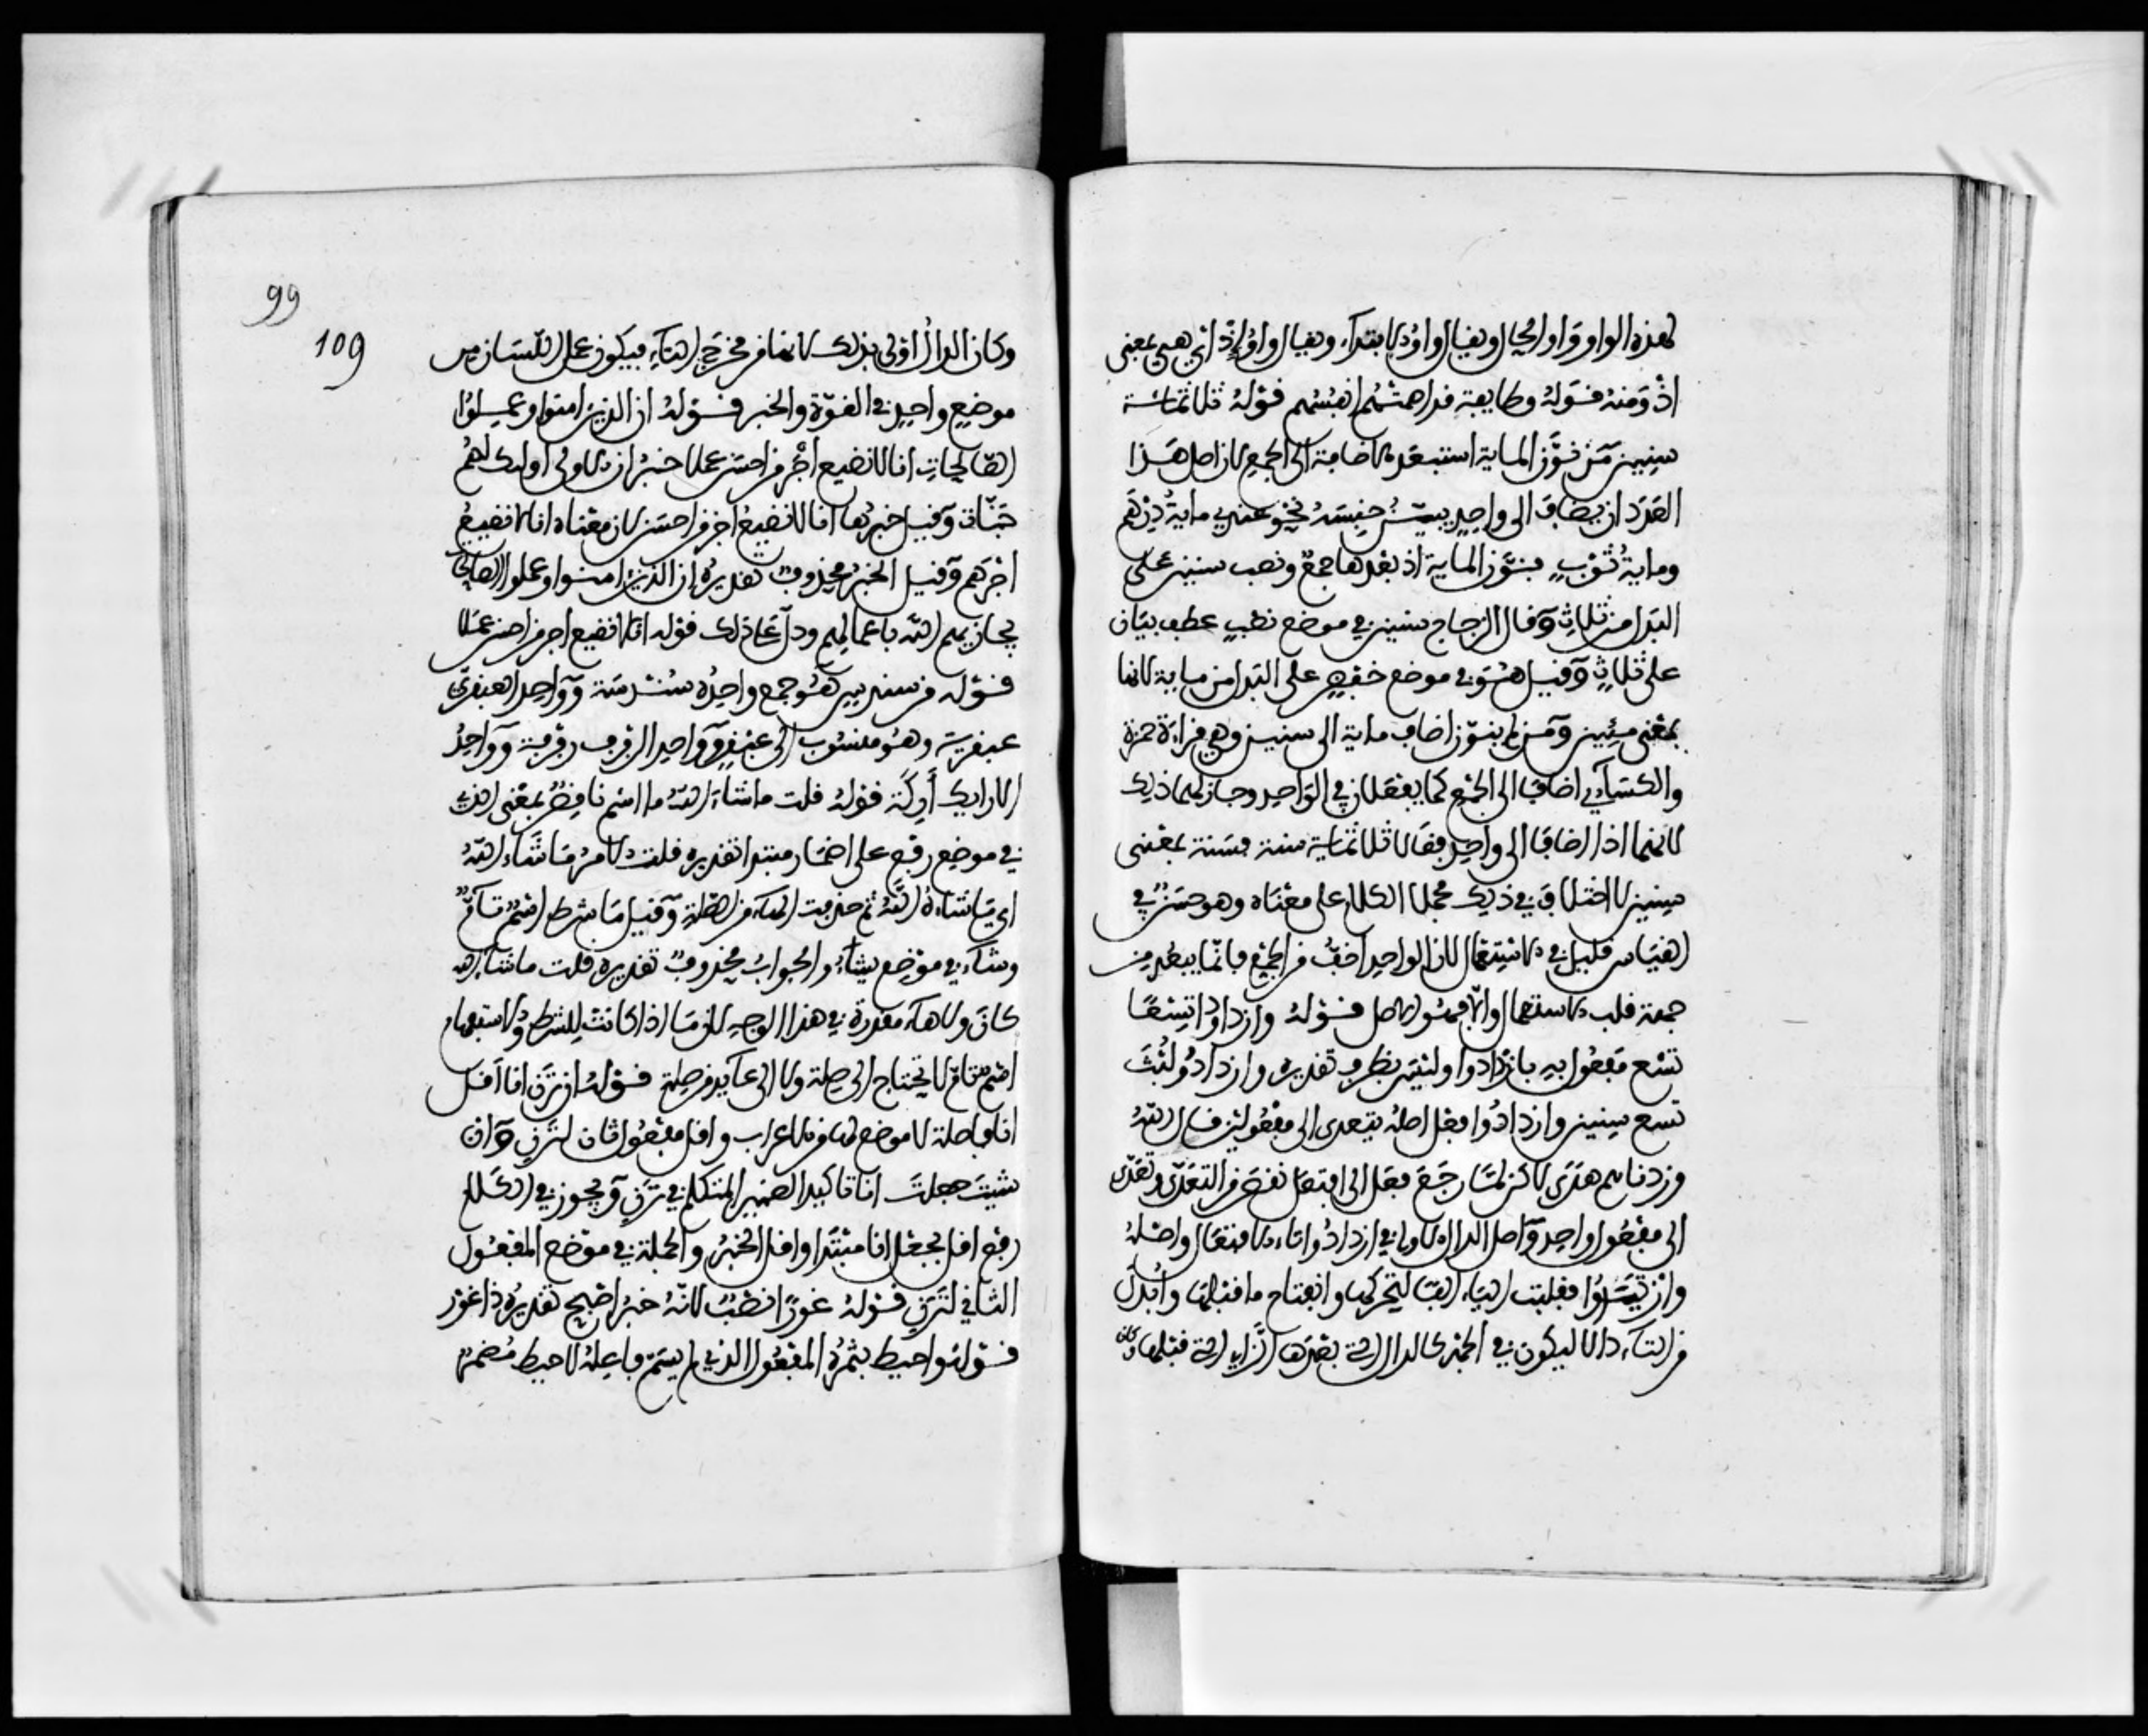 لهذه الواو واو الحال ويقال واو الابتداء ويقال واو إذ اي هي بمعنى
اذ ومنه قوله وطايفة قد اهمتهم انفسهم قوله ثلاثماية
سنين من نون الماية استبعد الاضافة الى الجمع لان اصل هذا
العدد ان يضاف الى واحد يبين جنسه نحو عندي ماية درهم
وماية ثوب فنون الماية اذ بعدها جمع ونصب سنين على
البدل من ثلاث وقال الزجاج سنين في موضع نصب عطف بيان
على ثلاث وقيل هو في موضع خفض على البدل من ماية لانها
بمعنى مئين ومن لم ينون اضاف ماية الى سنين وهي قراءة حمزة
والكساءي اضاف الى الجمع كما يفعلان في الواحد وجاز لهما ذلك
لانهما اذا اضافا الى واحد فقالا ثلاثماية سنة فسنة بمعنى
سنين لا اختلاف في ذلك فحملا الكلام على معناه وهو حسن في
القياس قليل في الاستعمال لان الواحد اخف من الجمع فانما يبعد من
جهة قلة الاستعمال والا فهو الاصل قوله وازدادوا تسعا
تسع مفعول به بازدادوا وليس بظرف تقديره وازدادوا لبث
تسع سنين وازدادوا فعل اصله يتعدى الى مفعولين قال الله
وزدناهم هدى لاكن لما رجع فعل الى افتعل نقص من التعدي وتعدى
الى مفعول واحد واصل الدال الاولى في ازدادوا تاء الافتعال واصله
وازتيدوا فقلبت الياء الفا لتحركها وانفتاح ما قبلها وابدل
من التاء دالا ليكون في الجهر كالدال التي بعدها والزاي التي قبلها وكان
99
109
وكان الدال اولى بذلك لانها من مخرج التاء فيكون عمل اللسان من
موضع واحد في القوة والجهر قوله ان الذين امنوا وعملوا
الصالحات انا لا نضيع اجر من احسن عملا خبر ان الاولى اولئك لهم
جنات وقيل خبرها انا لا نضيع اجر من احسن لان معناه انا لا نضيع
اجرهم وقيل الخبر محذوف تقديره ان الذين امنوا وعملوا الصالحات
يجازيهم الله باعمالهم ودل على ذلك قوله انا لا نضيع اجر من احسن عملا
قوله من سندس هو جمع واحده سندسة وواحد العبقري
عبقرية وهو منسوب الى عبقر وواحد الرفرف رفرفة وواحد
الارايك أريكة قوله قلت ما شاء الله ما اسم ناقص بمعنى الذي
في موضع رفع على اضمار مبتدا تقديره قلت الامر ما شاء الله
اي ما شاءه الله ثم حذفت الهاء من الصلة وقيل ما شرط اسم تام
وشاء في موضع يشاء والجواب محذوف تقديره قلت ما شاء الله
كان ولا هاء مقدرة في هذا الوجه لان ما اذا كانت للشرط والاستفهام
اسم تام لا يحتاج الى صلة ولا الى عايد من صلة قوله ان ترن انا اقل
انا فاصلة لا موضع لها من الاعراب واقل مفعول ثان لترن وان
شيت جعلت انا تاكيدا لضمير المتكلم في ترن ويجوز في الكلام
رفع اقل بجعل انا مبتدا واقل الخبر والجملة في موضع المفعول
الثاني لترن قوله غورا نصب لانه خبر اصبح تقديره ذا غور
قوله واحيط بثمره المفعول الذي لم يسم فاعله لاحيط مضمر